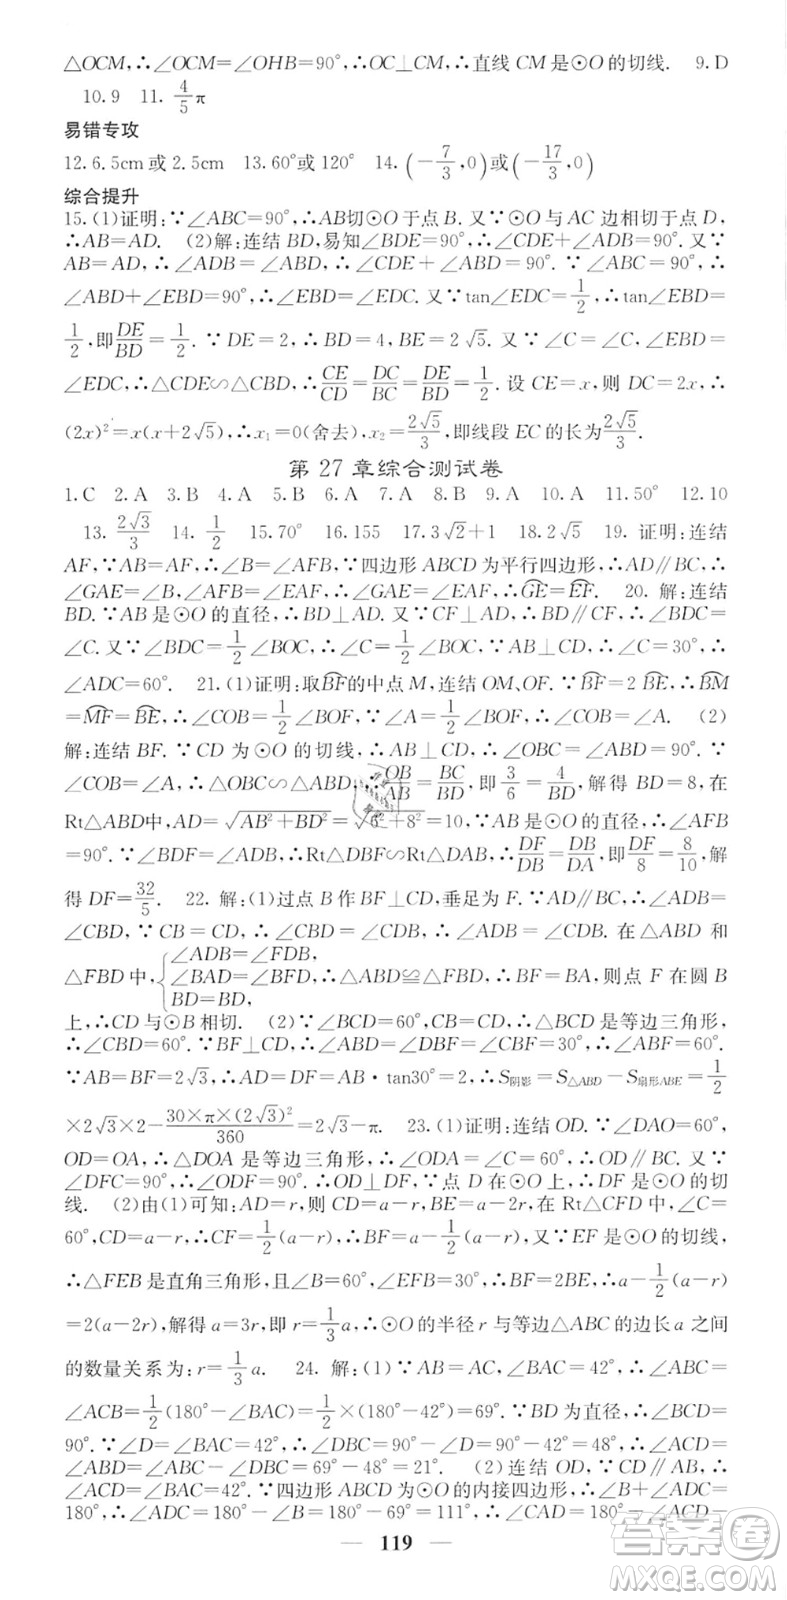 △OCM,∴∠OCM=∠OHB=90°,∴OC⊥CM,∴直线 CM 是⊙O 的切线. 9.D
10.9 11. 4/5 π
易错专攻
12.6.5cm或 2.5cm 13.60°或 120° 14.(-7/3,0)或(-17/3,0)
综合提升
15.(1)证明:∵∠ABC=90°,∴AB切⊙O 于点 B. 又∵⊙O 与 AC 边相切于点 D,
∴AB=AD. (2)解:连结 BD,易知∠BDE=90°,∴∠CDE+∠ADB=90°. 又∵
AB=AD,∴∠ADB=∠ABD,∴∠CDE+∠ABD=90°. ∵∠ABC=90°,∴
∠ABD+∠EBD=90°,∴∠EBD=∠EDC. 又∵tan∠EDC=1/2,∴tan∠EBD=
1/2,即DE/BD=1/2. ∵DE=2,∴BD=4,BE=2√5. 又∵∠C=∠C,∠EBD=
∠EDC,∴△CDE∽△CBD,∴CE/CD=DC/BC=DE/BD=1/2. 设 CE=x,则 DC=2x,∴
(2x)²=x(x+2√5),∴x₁=0(舍去),x₂=2√5/3,即线段 EC 的长为2√5/3.
第 27 章综合测试卷
1.C 2.A 3.B 4.A 5.B 6.A 7.B 8.A 9.A 10.A 11.50° 12.10
13. 2√3/3 14. 1/2 15.70° 16.155 17.3√2+1 18.2√5 19. 证明:连结
AF,∵AB=AF,∴∠B=∠AFB,∵四边形 ABCD 为平行四边形,∴AD∥BC,∴
∠GAE=∠B,∠EAF=∠AFB,∴∠GAE=∠EAF,∴G͡E=E͡F. 20. 解:连结
BD. ∵AB 是⊙O 的直径,∴BD⊥AD. 又∵CF⊥AD,∴BD∥CF,∴∠BDC=
∠C. 又∵∠BDC=1/2∠BOC,∴∠C=1/2∠BOC,∵AB⊥CD,∴∠C=30°,∴
∠ADC=60°. 21.(1)证明:取B͡F的中点 M,连结 OM、OF. ∵B͡F=2 B͡E,∴B͡M
=M͡F=B͡E,∴∠COB=1/2∠BOF,∵∠A=1/2∠BOF,∴∠COB=∠A. (2)
解:连结 BF. ∵CD 为⊙O 的切线,∴AB⊥CD,∴∠OBC=∠ABD=90°,∵
∠COB=∠A,∴△OBC∽△ABD,∴OB/AB=BC/BD,即3/6=4/BD,解得 BD=8,在
Rt△ABD中,AD=√(AB²+BD²)=√(6²+8²)=10,∵AB 是⊙O 的直径,∴∠AFB
=90°. ∵∠BDF=∠ADB,∴Rt△DBF∽Rt△DAB,∴DF/DB=DB/DA,即DF/8=8/10,解
得 DF=32/5. 22. 解:(1)过点 B 作 BF⊥CD,垂足为 F. ∵AD∥BC,∴∠ADB=
∠CBD,∵CB=CD,∴∠CBD=∠CDB,∴∠ADB=∠CDB. 在△ABD 和
△FBD 中,{∠ADB=∠FDB,
∠BAD=∠BFD,∴△ABD≌△FBD,∴BF=BA,则点 F 在圆 B
BD=BD,
上,∴CD 与⊙B 相切. (2)∵∠BCD=60°,CB=CD,∴△BCD 是等边三角形,
∴∠CBD=60°. ∵BF⊥CD,∴∠ABD=∠DBF=∠CBF=30°,∴∠ABF=60°.
∵AB=BF=2√3,∴AD=DF=AB·tan30°=2,∴S阴影=S△ABD-S扇形ABE=1/2
×2√3×2-30×π×(2√3)²/360=2√3-π. 23.(1)证明:连结 OD. ∵∠DAO=60°,
OD=OA,∴△DOA 是等边三角形,∴∠ODA=∠C=60°,∴OD∥BC. 又∵
∠DFC=90°,∴∠ODF=90°. ∴OD⊥DF,∵点 D 在⊙O 上,∴DF 是⊙O 的切
线. (2)由(1)可知:AD=r,则 CD=a-r,BE=a-2r,在 Rt△CFD 中,∠C=
60°,CD=a-r,∴CF=1/2(a-r),∴BF=a-1/2(a-r). 又∵EF 是⊙O 的切线,
∴△FEB 是直角三角形,且∠B=60°,∠EFB=30°,∴BF=2BE,∴a-1/2(a-r)
=2(a-2r),解得 a=3r,即 r=1/3a,∴⊙O 的半径 r 与等边△ABC 的边长 a 之间
的数量关系为:r=1/3a. 24. 解:(1)∵AB=AC,∠BAC=42°,∴∠ABC=
∠ACB=1/2(180°-∠BAC)=1/2×(180°-42°)=69°. ∵BD为直径,∴∠BCD=
90°. ∵∠D=∠BAC=42°,∴∠DBC=90°-∠D=90°-42°=48°,∴∠ACD=
∠ABD=∠ABC-∠DBC=69°-48°=21°. (2)连结 OD,∵OD∥AC,∴
∠DAC=∠ADO. ∵四边形 ABCD 为⊙O 的内接四边形,∴∠B+∠ADC=
180°,∴∠ADC=180°-∠B=180°-69°=111°,∴∠CAD=180°-∠ADC-
119
答案圈
MXQE.COM